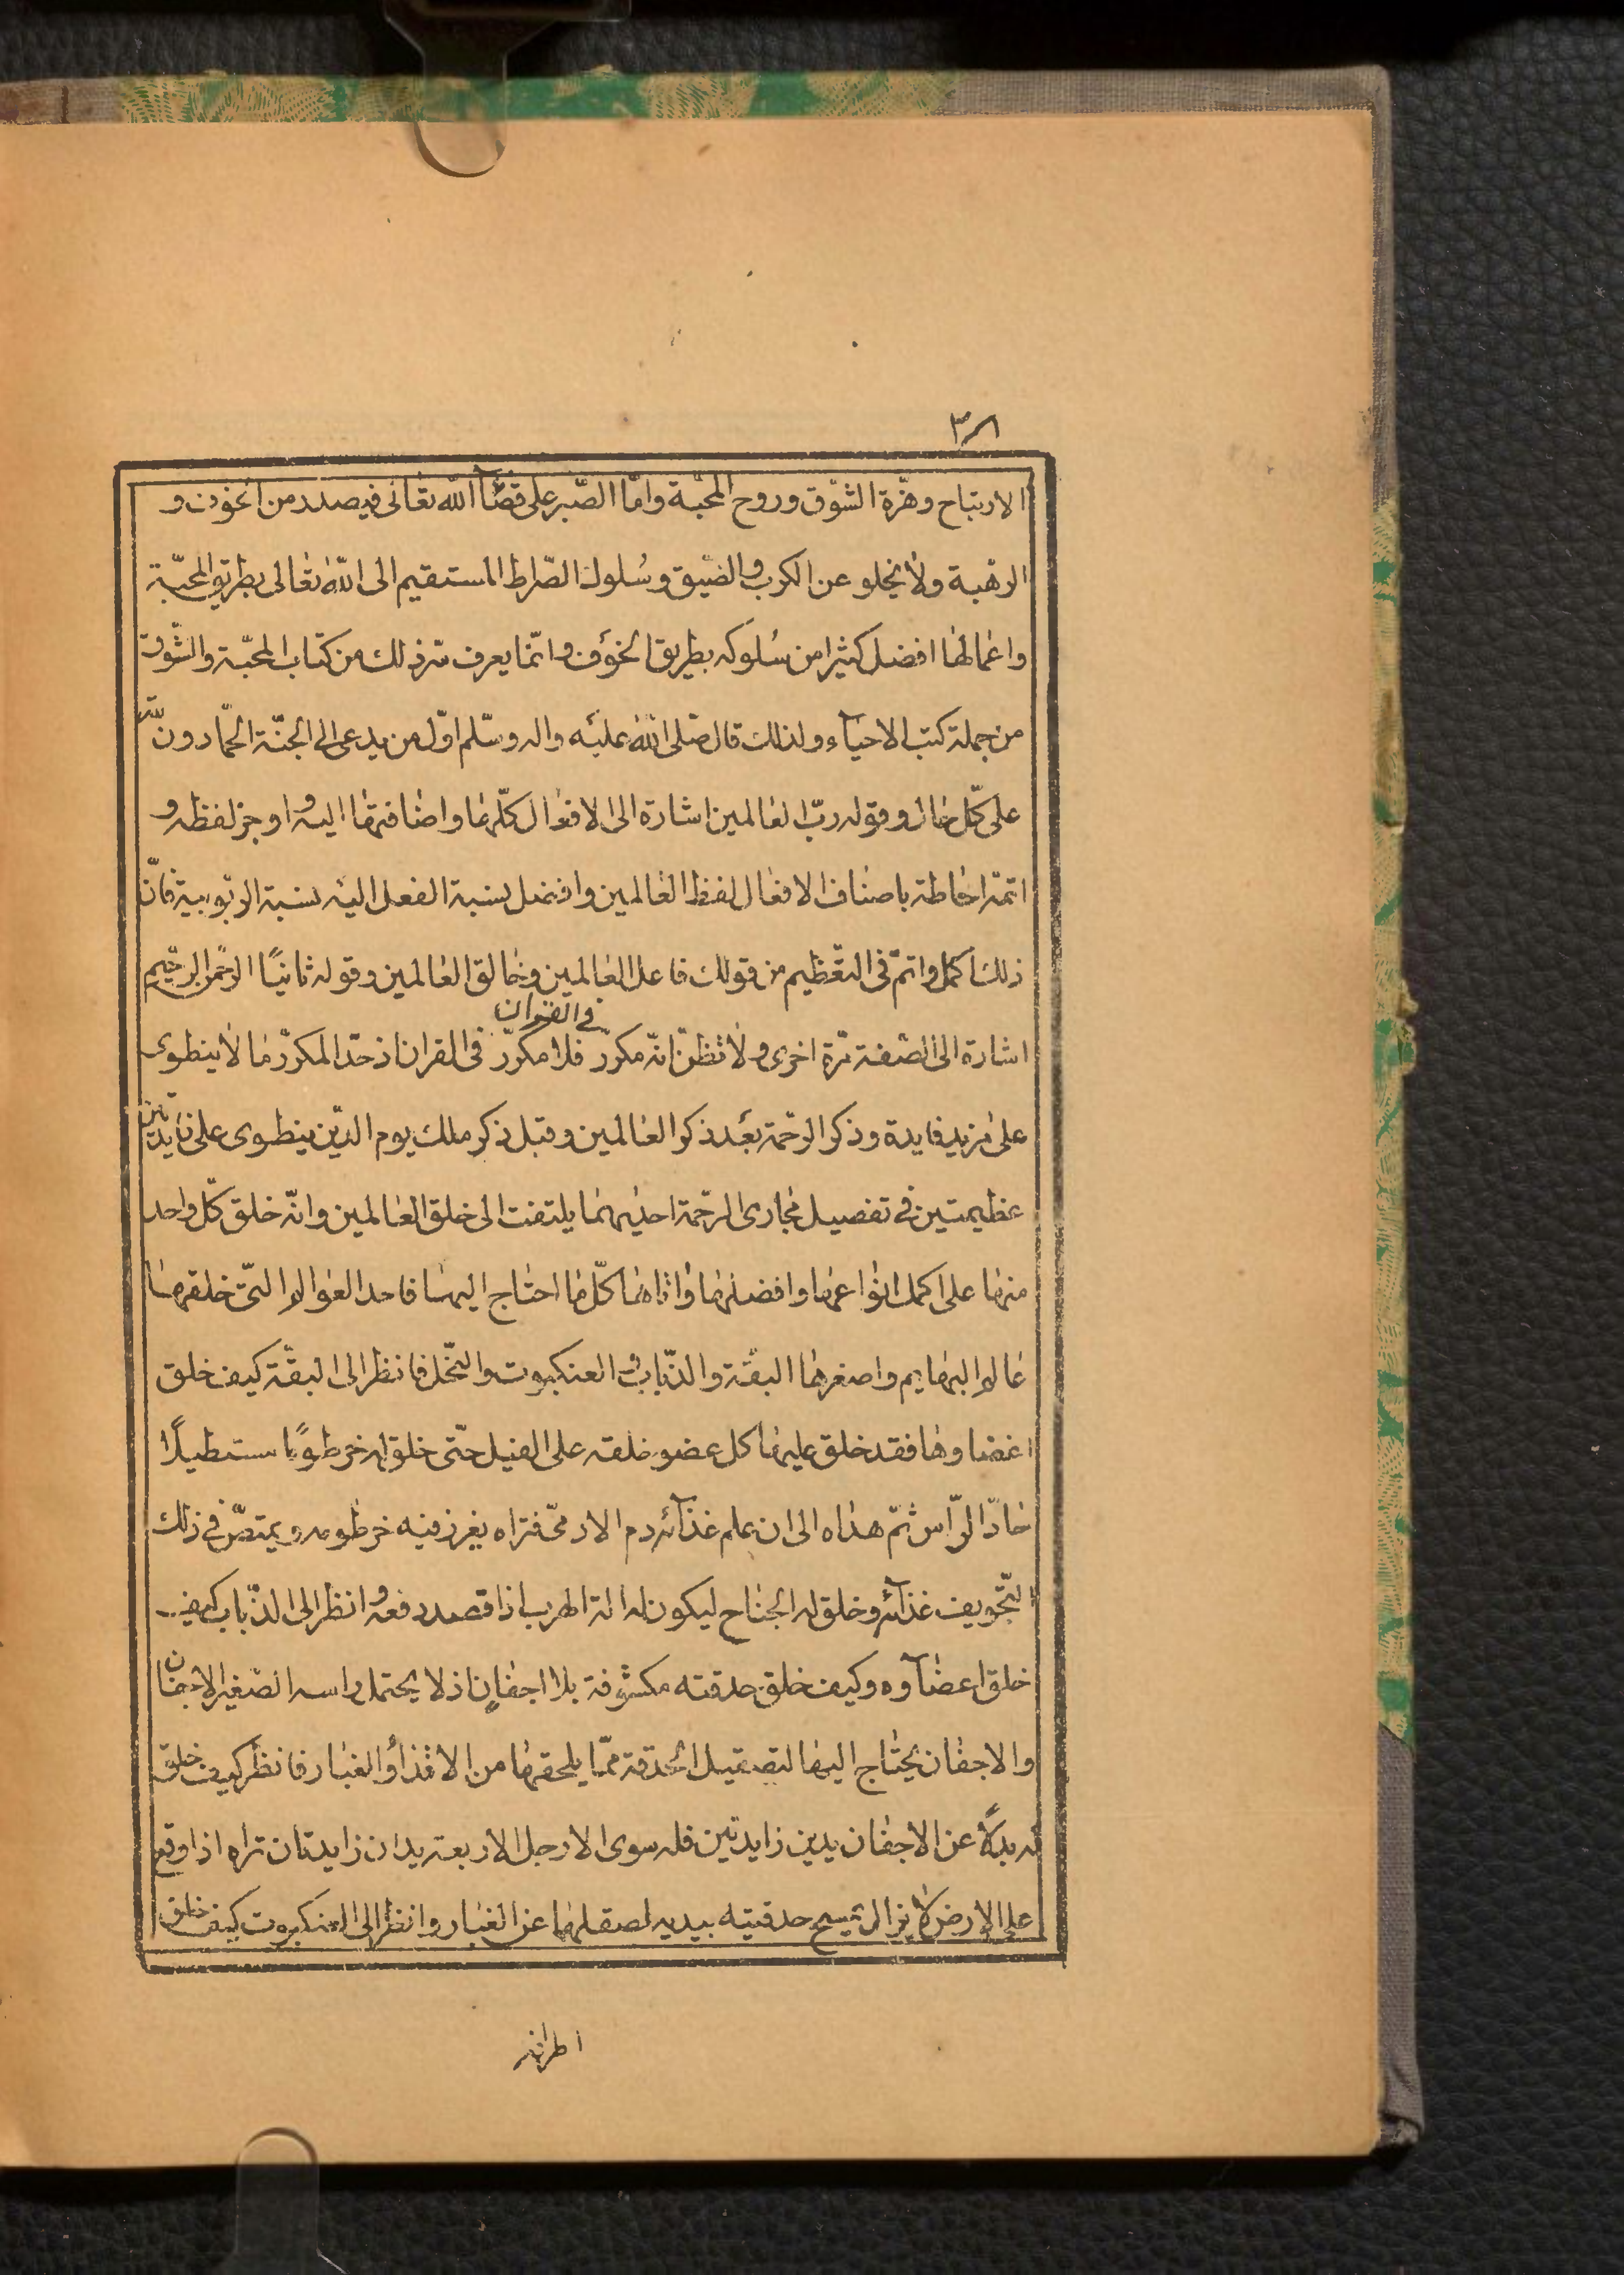 ٣٨
الارتياح وهزّة الشوق وروح المحبّة وامّا الصّبر على قضآء اللّه تعالى فيصدر من الخوف و
الرهبة ولا يخلو عن الكرب والضّيق وسُلوك الصّراط المستقيم الى اللّه تعالى بطريق المحبّة
واعمالها افضل كثيرا من سُلوكه بطريق الخوف وانّما يعرف سّر ذلك من كتاب المحبّة والشّوق
من جملة كتب الاحيآء ولذلك قال صلى اللّه عليه واله وسلّم اوّل من يدعى الى الجنّة الحمّادون للّه
على كلّ حال وقوله ربّ العالمين اشارة الى الافعال كلّها واضافتها اليه واوجز لفظ و
اتمّه احاطة باصناف الافعال لفظ العالمين وافضل نسبة الفعل اليه نسبة الربوبية فانّ
ذلك اكمل واتمّ فى التعظيم من قولك فاعل العالمين وخالق العالمين وقوله ثانيًا الرحمن الرحيم
فى القران
اشارة الى الصّفة مّرة اخرى ولا تظنّ انّه مكرّر فلا مكرّر فى القران اذ حدّ المكرّر ما لا ينطوى
على مزيد فايدة وذكر الرحمة بعد ذكر العالمين وقبل ذكر ملك يوم الدّين ينطوى على فايدتين
عظيمتين فى تفصيل مجارى الرحمة احديهما يلتفت الى خلق العالمين وانّه خلق كلّ واحد
منها على اكمل انواعها وافضلها واتاها كلّ ما احتاج اليها فاحد العوالم الّتى خلقها
عالم البهايم واصغرها البقّة والذّباب والعنكبوت والنّحل فانظر الى البقّة كيف خلق
اعضاوها فقد خلق عليها كل عضو خلقه على الفيل حتّى خلق له خرطومًا مستطيلًا
حادّ الرّاس ثمّ هداه الى ان علم غذآئه دم الادمىّ فتراه يغرز فيه خرطومه ويمتصّ فى ذلك
التّجويف غذآئه وخلق له الجناح ليكون له الة الهرب اذا قصد دفعه وانظر الى الذّباب كيف
خلق اعضآوه وكيف خلق حدقته مكشوفة بلا اجفانٍ اذ لا يحتمل راسه الصّغير الاجفان
والاجفان يحتاج اليها لتصقيل الحدقة ممّا يلحقها من الاقذآء والغبار فانظر كيف خلق
له بدلًا عن الاجفان يدين زايدتين فله سوى الارجل الاربعة يدان زايدتان تراه اذا وقع
على الارض لا يزال يمسح حدقيته بيديه لصقلها عن الغبار وانظر الى العنكبوت كيف خلق
اطرافه